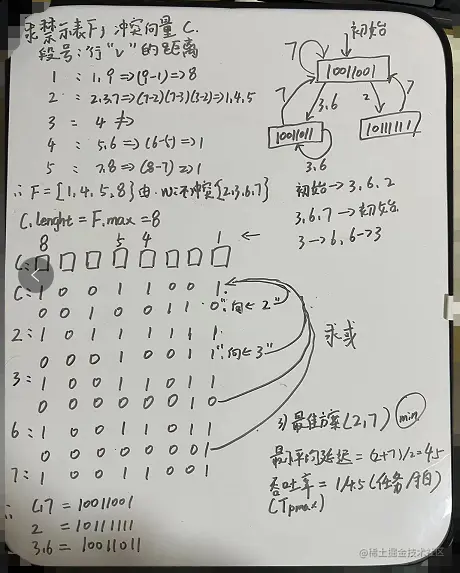 求禁示表F,冲突向量C.
段号:行"√"的距离
1 : 1,9 => (9-1) => 8
2 : 2,3,7 => (7-2)(7-3)(3-2) => 1,4,5
3 = 4 ≠>
4 : 5,6 => (6-5) => 1
5 : 7,8 => (8-7) => 1
∴ F = {1,4,5,8} 由 不冲突{2,3,6,7}
C,lenght = F,max = 8
8 5 4 1 ←
C:
C: 1 0 0 1 1 0 0 1
0 0 1 0 0 1 1 0 "向← 2"
2: 1 0 1 1 1 1 1 1
0 0 0 1 0 0 1 1 "向← 3"
3: 1 0 0 1 1 0 1 1
0 0 0 0 0 0 1 0
6: 1 0 0 1 1 0 1 1
0 0 0 0 0 0 0 1
7: 1 0 0 1 1 0 0 1
∴ C,7 = 10011001
2 = 10111111
3,6 = 10011011
求或
初始
7
10011001
7
3,6
2
7
10011011
1011111
3,6
初始→3,6,2
3,6,7→初始
3→6,6→3
3) 最佳方案(2,7) min
最小平均延迟=(2+7)/2=4.5
吞吐率=1/4.5(任务/拍)
(Tpmax)
@稀土掘金技术社区